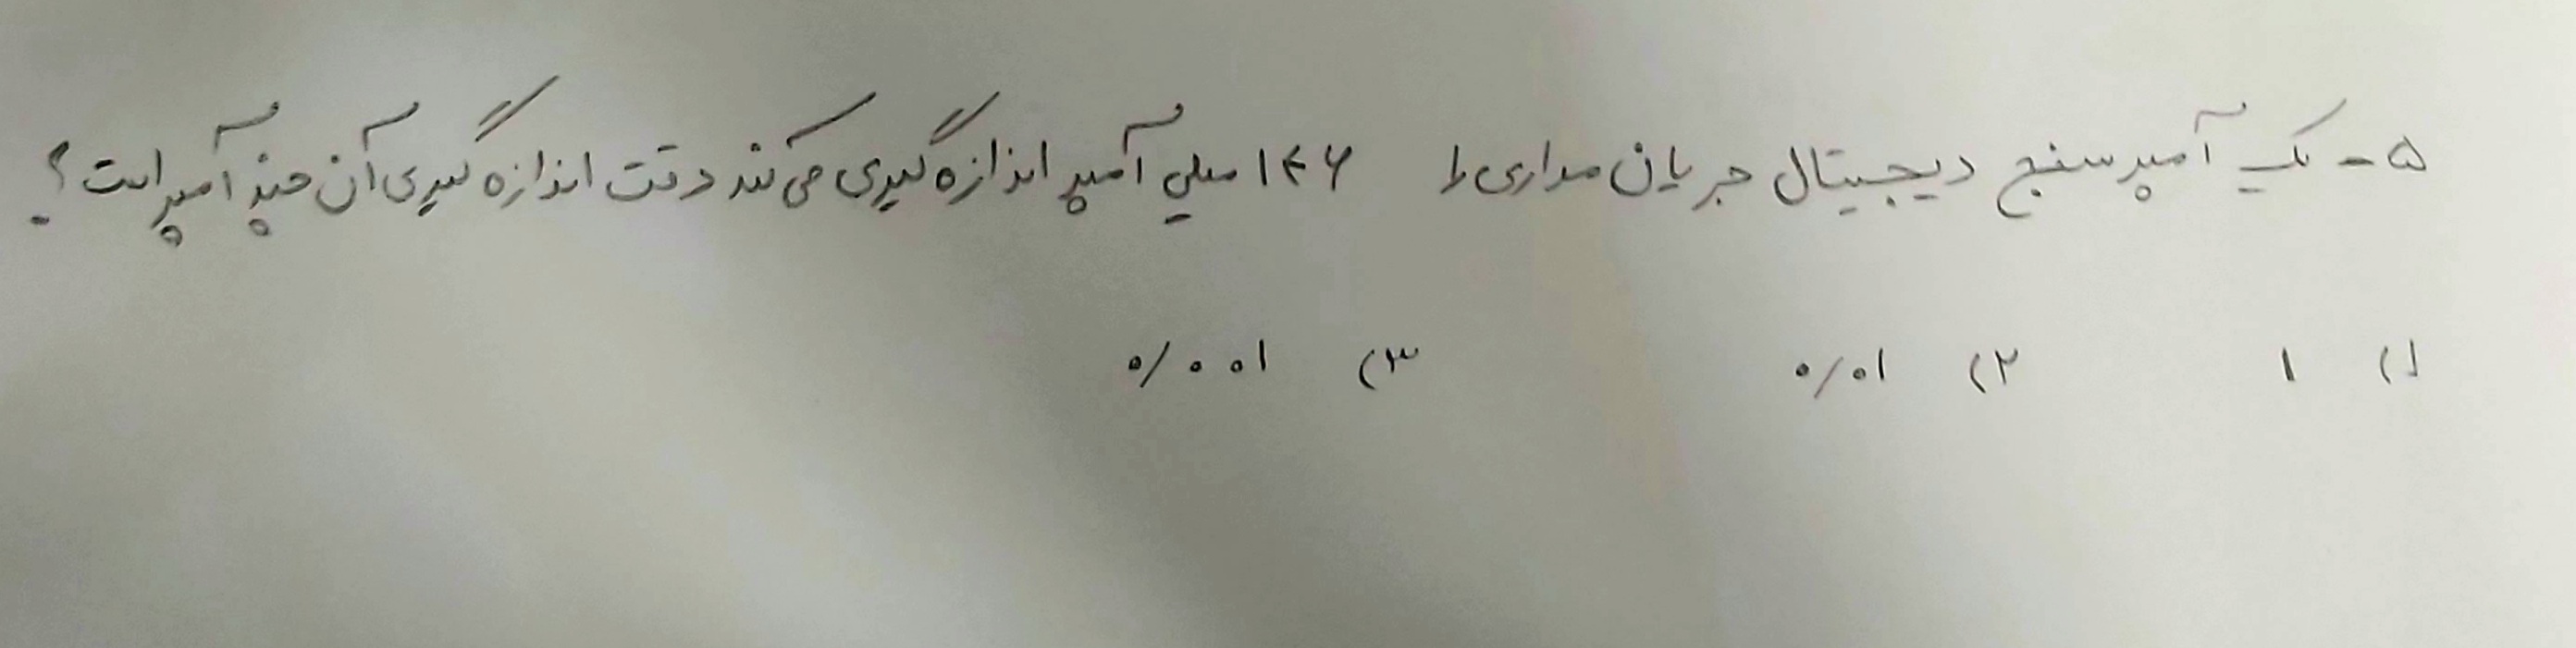 ۵ - یک آمپرسنج دیجیتال جریان مداری را ۱۴۶ میلی آمپر اندازه گیری می کند دقت اندازه گیری آن چند آمپر است؟
۱) ۱ ۲) ۰/۰۱ ۳) ۰/۰۰۱